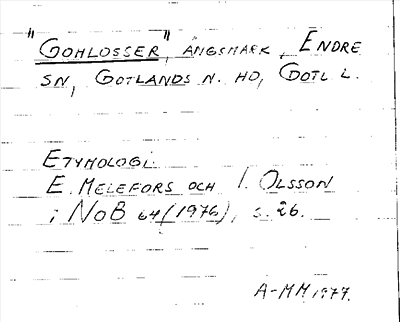 "GOHLOSSER", ÄNGSMARK, ENDRE
SN, GOTLANDS N. HD, GOTL L.
ETYMOLOGI:
E. MELEFORS OCH I. OLSSON
i NoB 64 (1976), s. 26.
A-MM 1977.